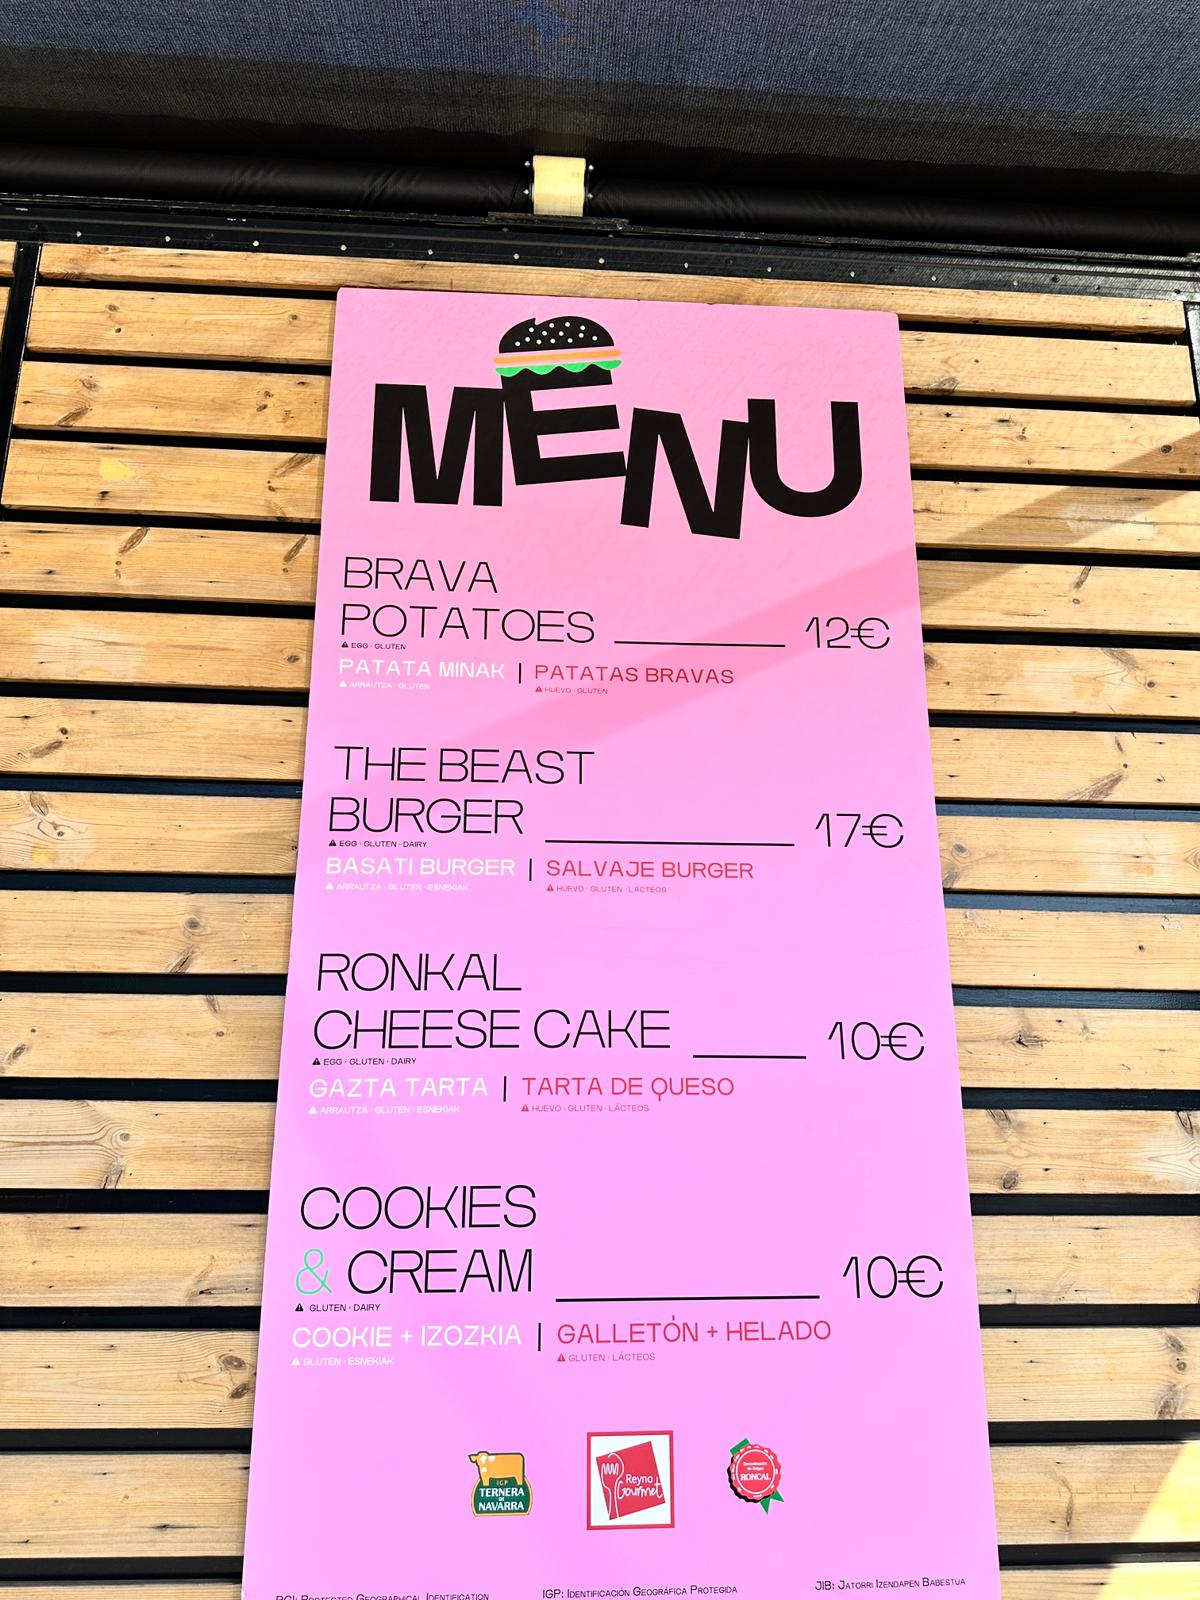 MENU
BRAVA
POTATOES 12€
EGG · GLUTEN
PATATA MINAK | PATATAS BRAVAS
ARRAUTZA · GLUTEN HUEVO · GLUTEN
THE BEAST
BURGER 17€
EGG · GLUTEN · DAIRY
BASATI BURGER | SALVAJE BURGER
ARRAUTZA · GLUTEN · ESNEKIAK HUEVO · GLUTEN · LÁCTEOS
RONKAL
CHEESE CAKE 10€
EGG · GLUTEN · DAIRY
GAZTA TARTA | TARTA DE QUESO
ARRAUTZA · GLUTEN · ESNEKIAK HUEVO · GLUTEN · LÁCTEOS
COOKIES
& CREAM 10€
GLUTEN · DAIRY
COOKIE + IZOZKIA | GALLETÓN + HELADO
GLUTEN · ESNEKIAK GLUTEN · LÁCTEOS
IGP
TERNERA
DE
NAVARRA
Reyno
Gourmet
Denominación
de Origen
RONCAL
PGI: PROTECTED GEOGRAPHICAL IDENTIFICATION IGP: IDENTIFICACIÓN GEOGRÁFICA PROTEGIDA JIB: JATORRI IZENDAPEN BABESTUA